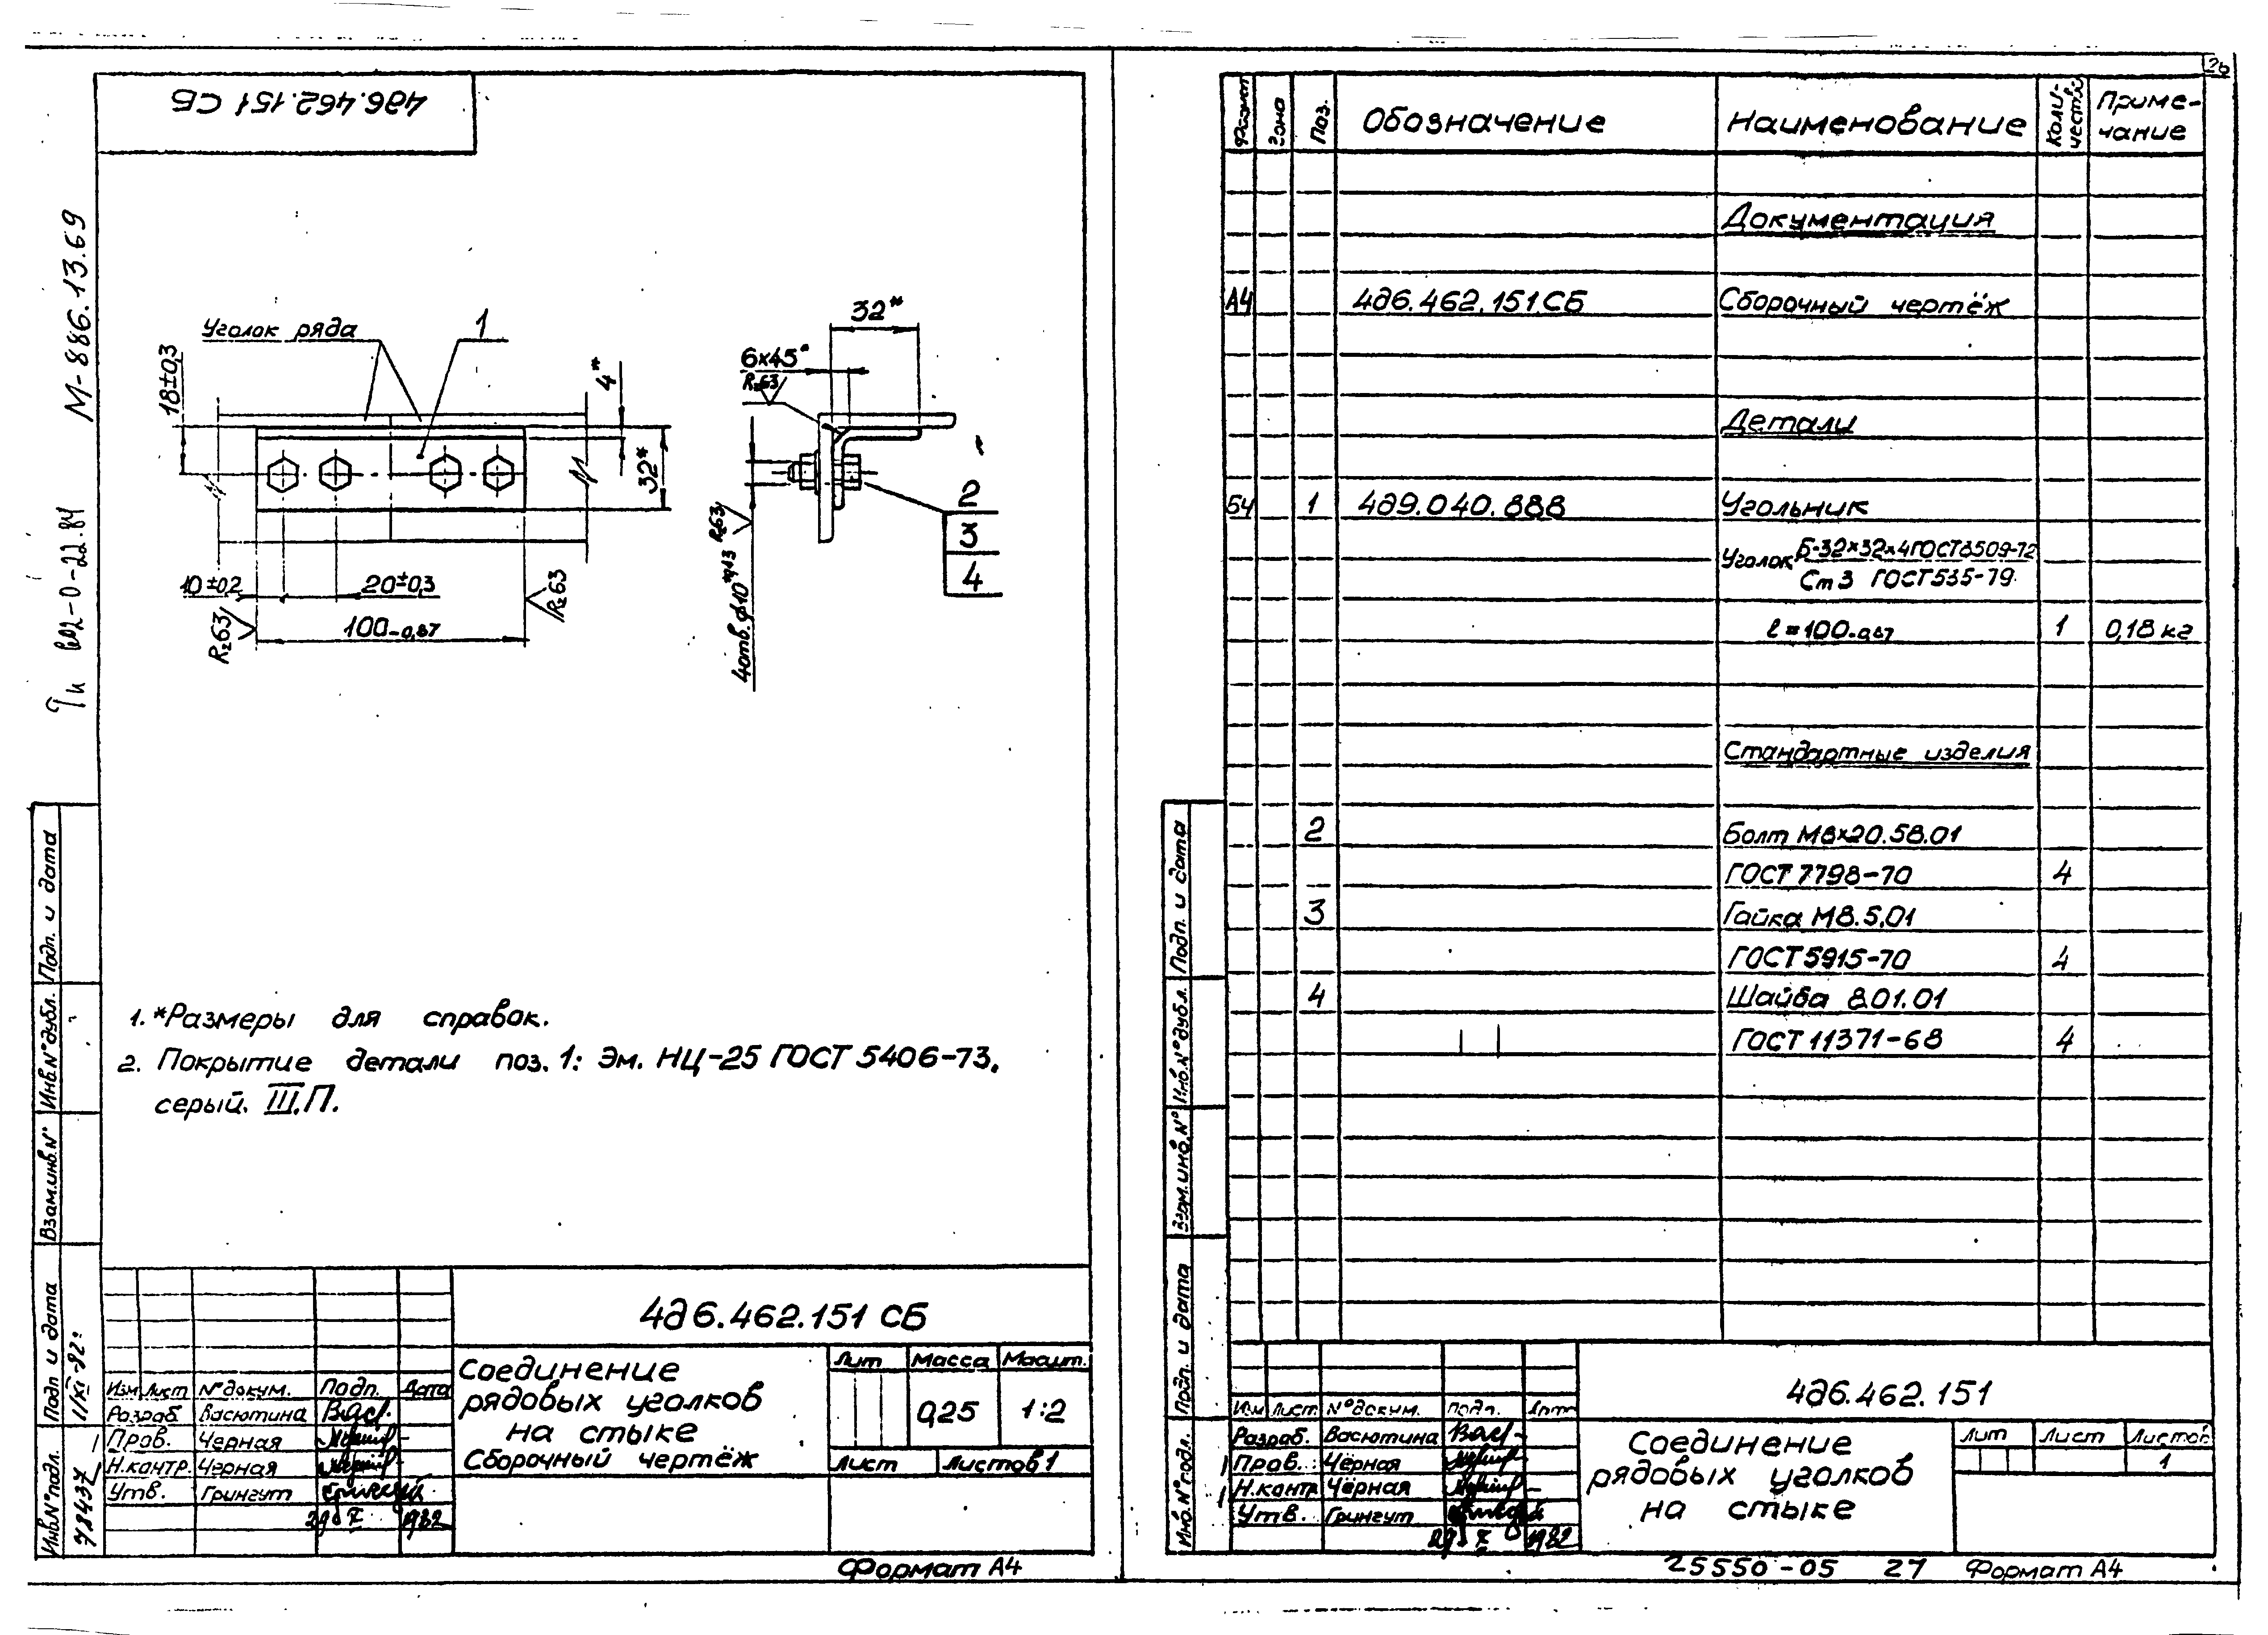 4д6.462.151 СБ
М-886.13.69
Уголок ряда
1
18±0,3
4*
32*
10±0,2
20±0,3
100-0,87
Rz63
Rz63
32*
6×45°
Rz63
Rz63
4отв.ф10
2
3
4
1. *Размеры для справок.
2. Покрытие детали поз. 1: Эм. НЦ-25 ГОСТ 5406-73.
серый. III.П.
Подп. и дата
Инв.N°дубл.
Взам.инв.N°
Подп и дата
Инв.N°подл.
78437
4д6.462.151 СБ
Соединение
рядовых уголков
на стыке
Сборочный чертёж
Лит Масса Масшт.
0,25 1:2
Лист Листов 1
Изм Лист N°докум. Подп. Дата
Разраб. Васютина
Пров. Черная
Н.контр. Черная
Утв. Грингут
1982
Формат А4
26
Формат Зона Поз. Обозначение Наименование Коли-чество Приме-чание
Документация
А4 4д6.462.151.СБ Сборочный чертёж
Детали
БЧ 1 4д9.040.888 Угольник
Уголок Б-32×32×4 ГОСТ 8509-72
Ст 3 ГОСТ 535-79
ℓ=100-0,87 1 0,18 кг
Стандартные изделия
2 Болт М8×20.58.01
ГОСТ 7798-70 4
3 Гайка М8.5.01
ГОСТ 5915-70 4
4 Шайба 8.01.01
ГОСТ 11371-68 4
Подп. и дата
Инв.N°дубл.
Взам.инв.N°
Подп. и дата
Инв.N°подл.
4д6.462.151
Соединение
рядовых уголков
на стыке
Лит Лист Листов
1
Изм Лист N°докум. Подп. Дата
Разраб. Васютина
Пров. Чёрная
Н.контр Чёрная
Утв. Грингут
1982
25550-05 27 Формат А4